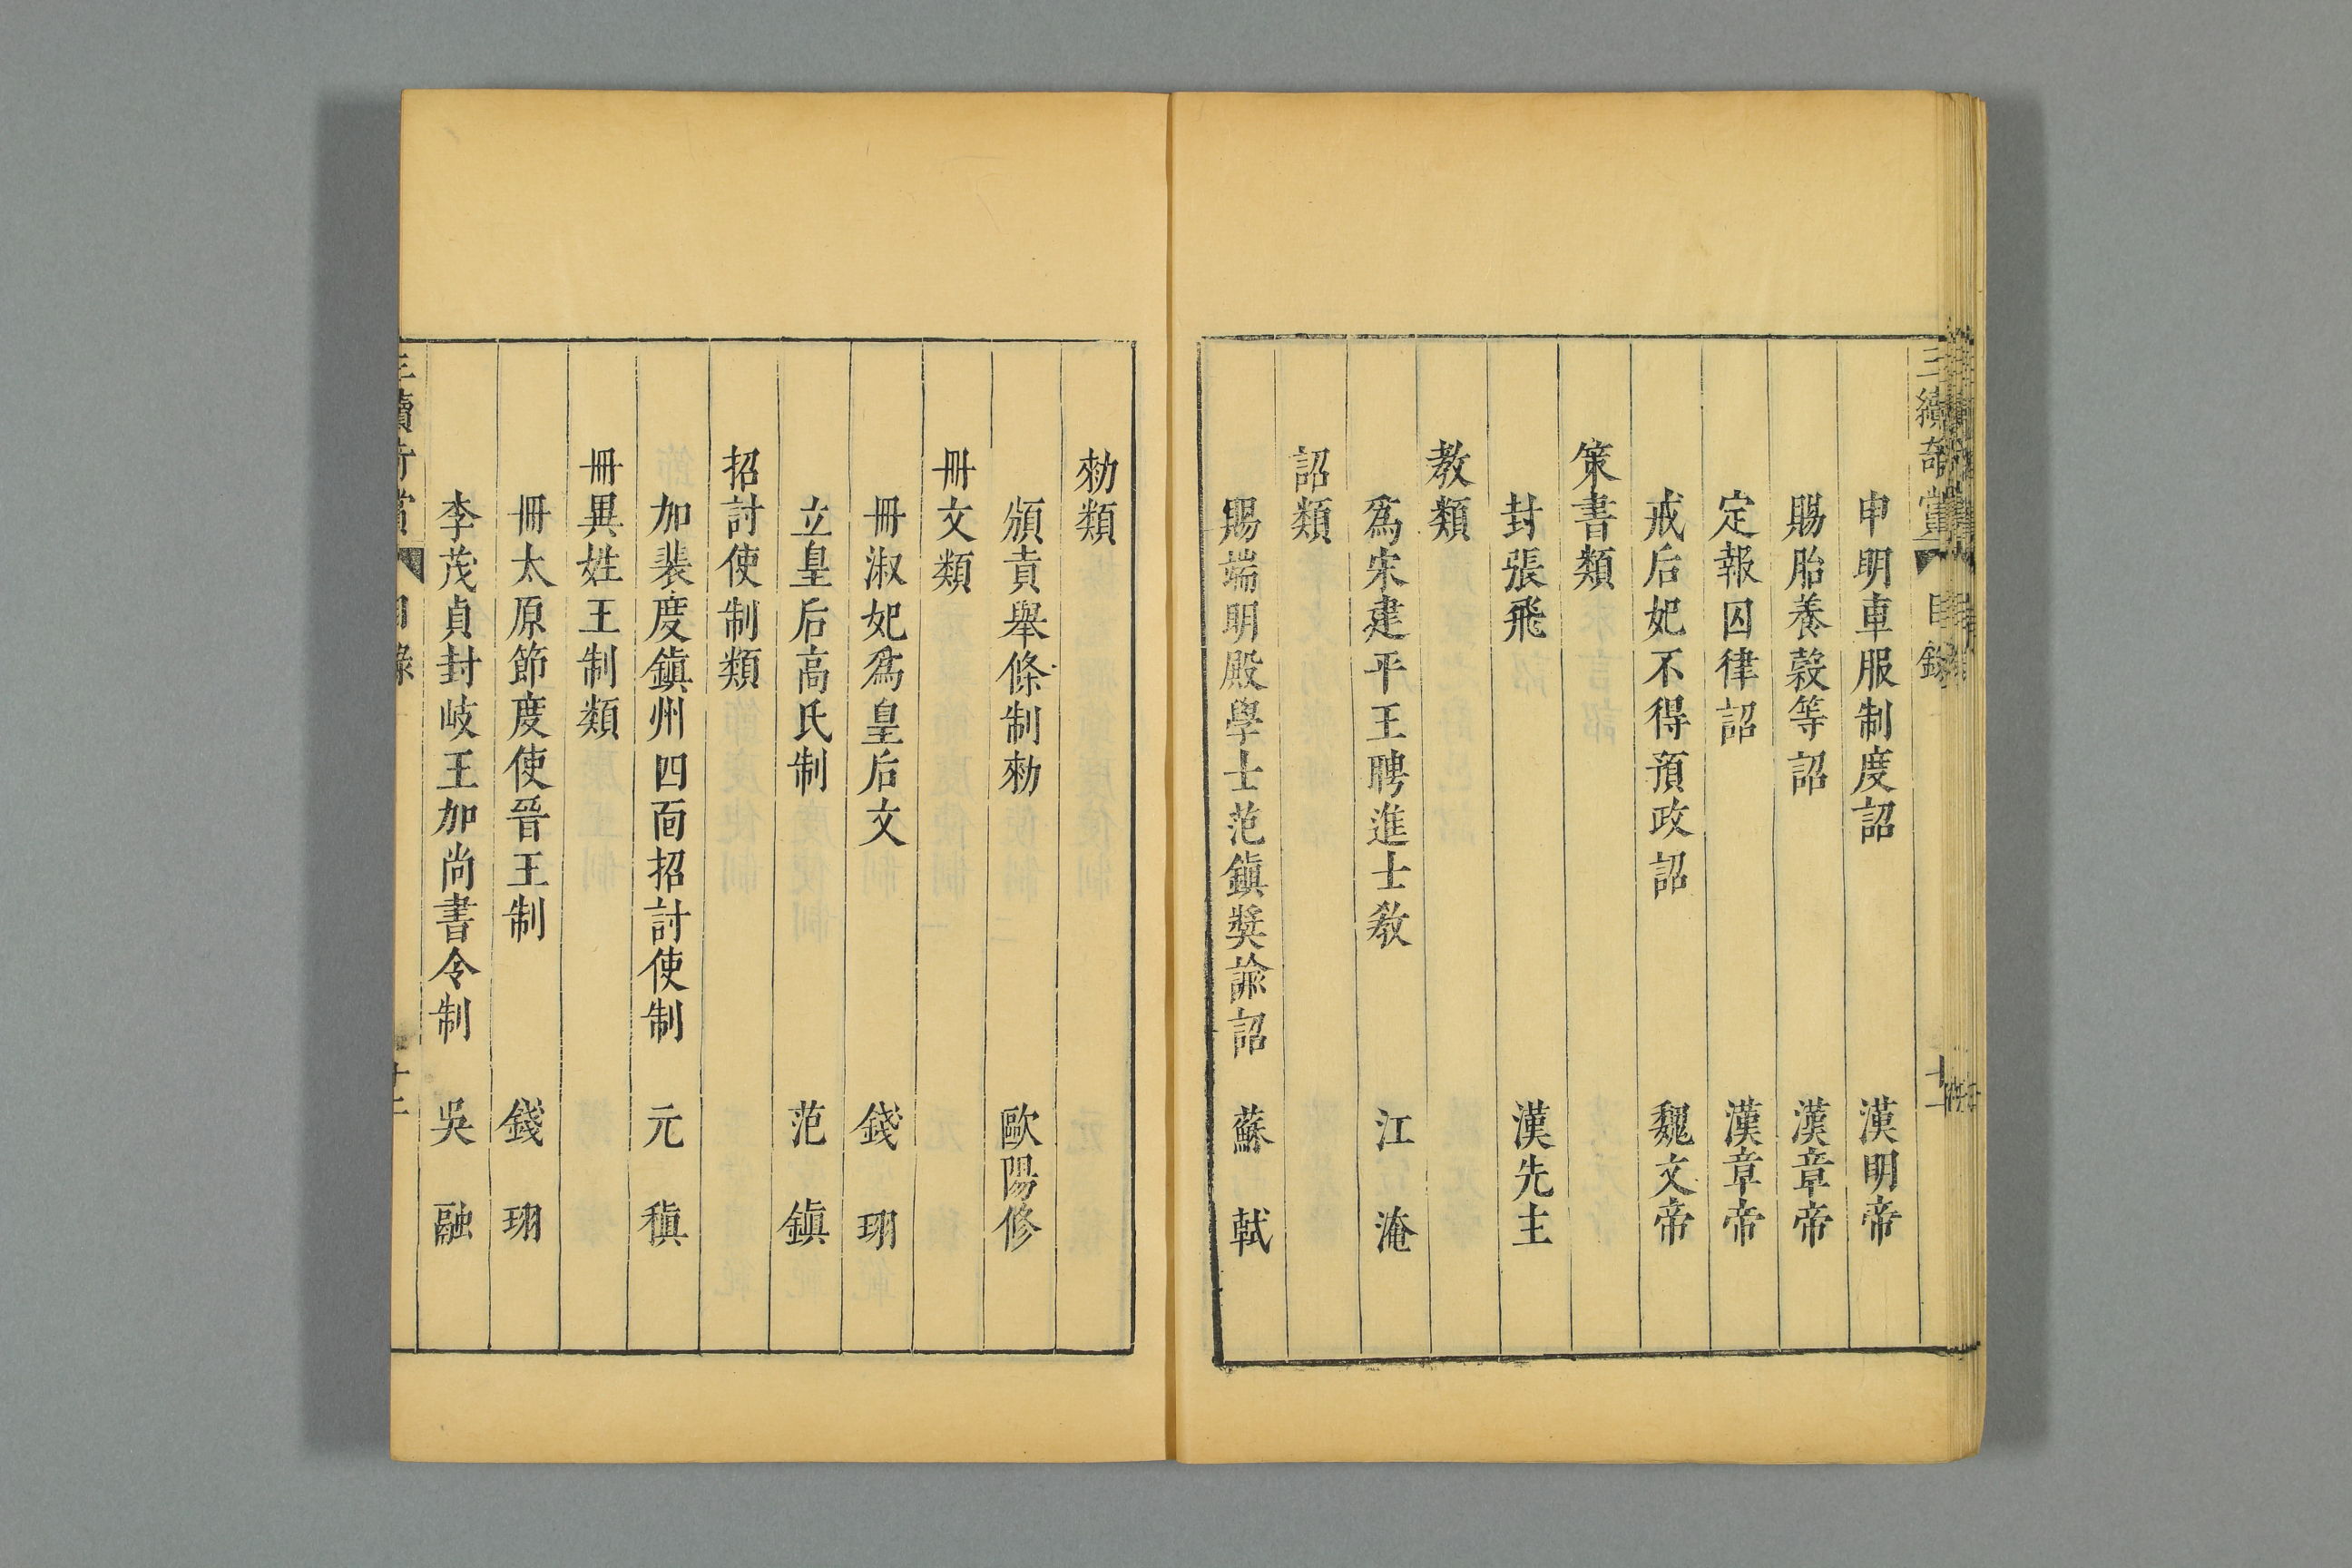 三續奇賞 目錄 十一
申明車服制度詔 漢明帝
賜胎養穀等詔 漢章帝
定報囚律詔 漢章帝
戒后妃不得預政詔 魏文帝
策書類
封張飛 漢先主
教類
爲宋建平王聘進士教 江淹
詔類
賜端明殿學士范鎮獎諭詔 蘇軾
勑類
頒貢舉條制勑 歐陽修
冊文類
冊淑妃爲皇后文 錢珝
立皇后高氏制 范鎮
招討使制類
加裴度鎮州四面招討使制 元稹
冊異姓王制類
冊太原節度使晉王制 錢珝
李茂貞封岐王加尚書令制 吳融
三續奇賞 目錄 十二